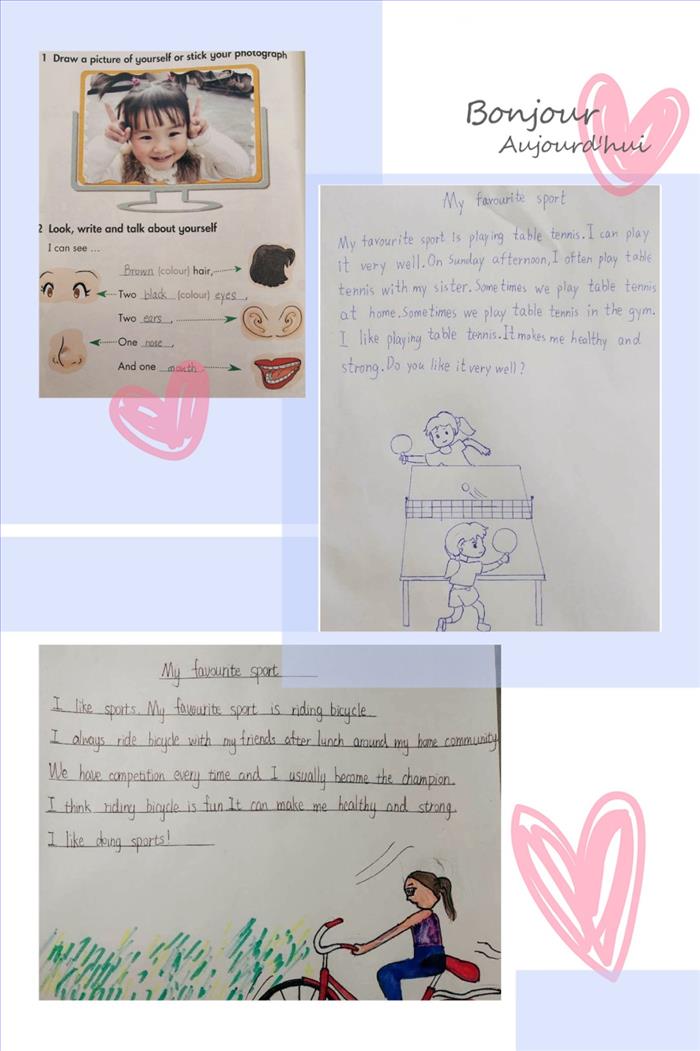 1 Draw a picture of yourself or stick your photograph
2 Look, write and talk about yourself
I can see ...
Brown (colour) hair,
Two black (colour) eyes,
Two ears,
One nose,
And one mouth.
Bonjour
Aujourd'hui
My favourite sport
My favourite sport is playing table tennis. I can play
it very well. On Sunday afternoon, I often play table
tennis with my sister. Sometimes we play table tennis
at home. Sometimes we play table tennis in the gym.
I like playing table tennis. It makes me healthy and
strong. Do you like it very well?
My favourite sport
I like sports. My favourite sport is riding bicycle
I always ride bicycle with my friends after lunch around my home community
We have competition every time and I usually become the champion.
I think riding bicycle is fun It can make me healthy and strong.
I like doing sports!